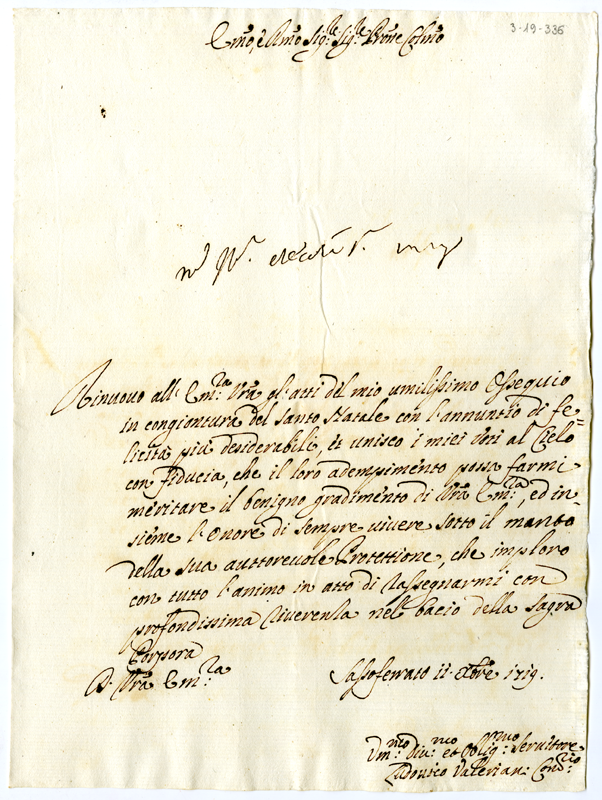 3-19-336
Emo, e Rmo Sig:re Sig:re Prone Colmo
Rinuovo all' Em:za Vra gl'atti del mio umilissimo Ossequio
in congiontura del Santo Natale con l'annuntio di fe=
licità più desiderabili, et unisco i miei Voti al Cielo
con fiducia, che il loro adempimento possa farmi
meritare il benigno gradimento di Vra Em:za, ed in=
sieme l'Onore di sempre vivere sotto il manto
della sua auttorevole Protettione, che imploro
con tutto l'animo in atto di rassegnarmi con
profondissima riverenza nel bacio della Sagra
Porpora
D. Vra Em:za
Sassoferrato 11 Xbre 1719.
Vm:mo Div:mo et Oblig:mo Servitore
Lodovico Valerian: